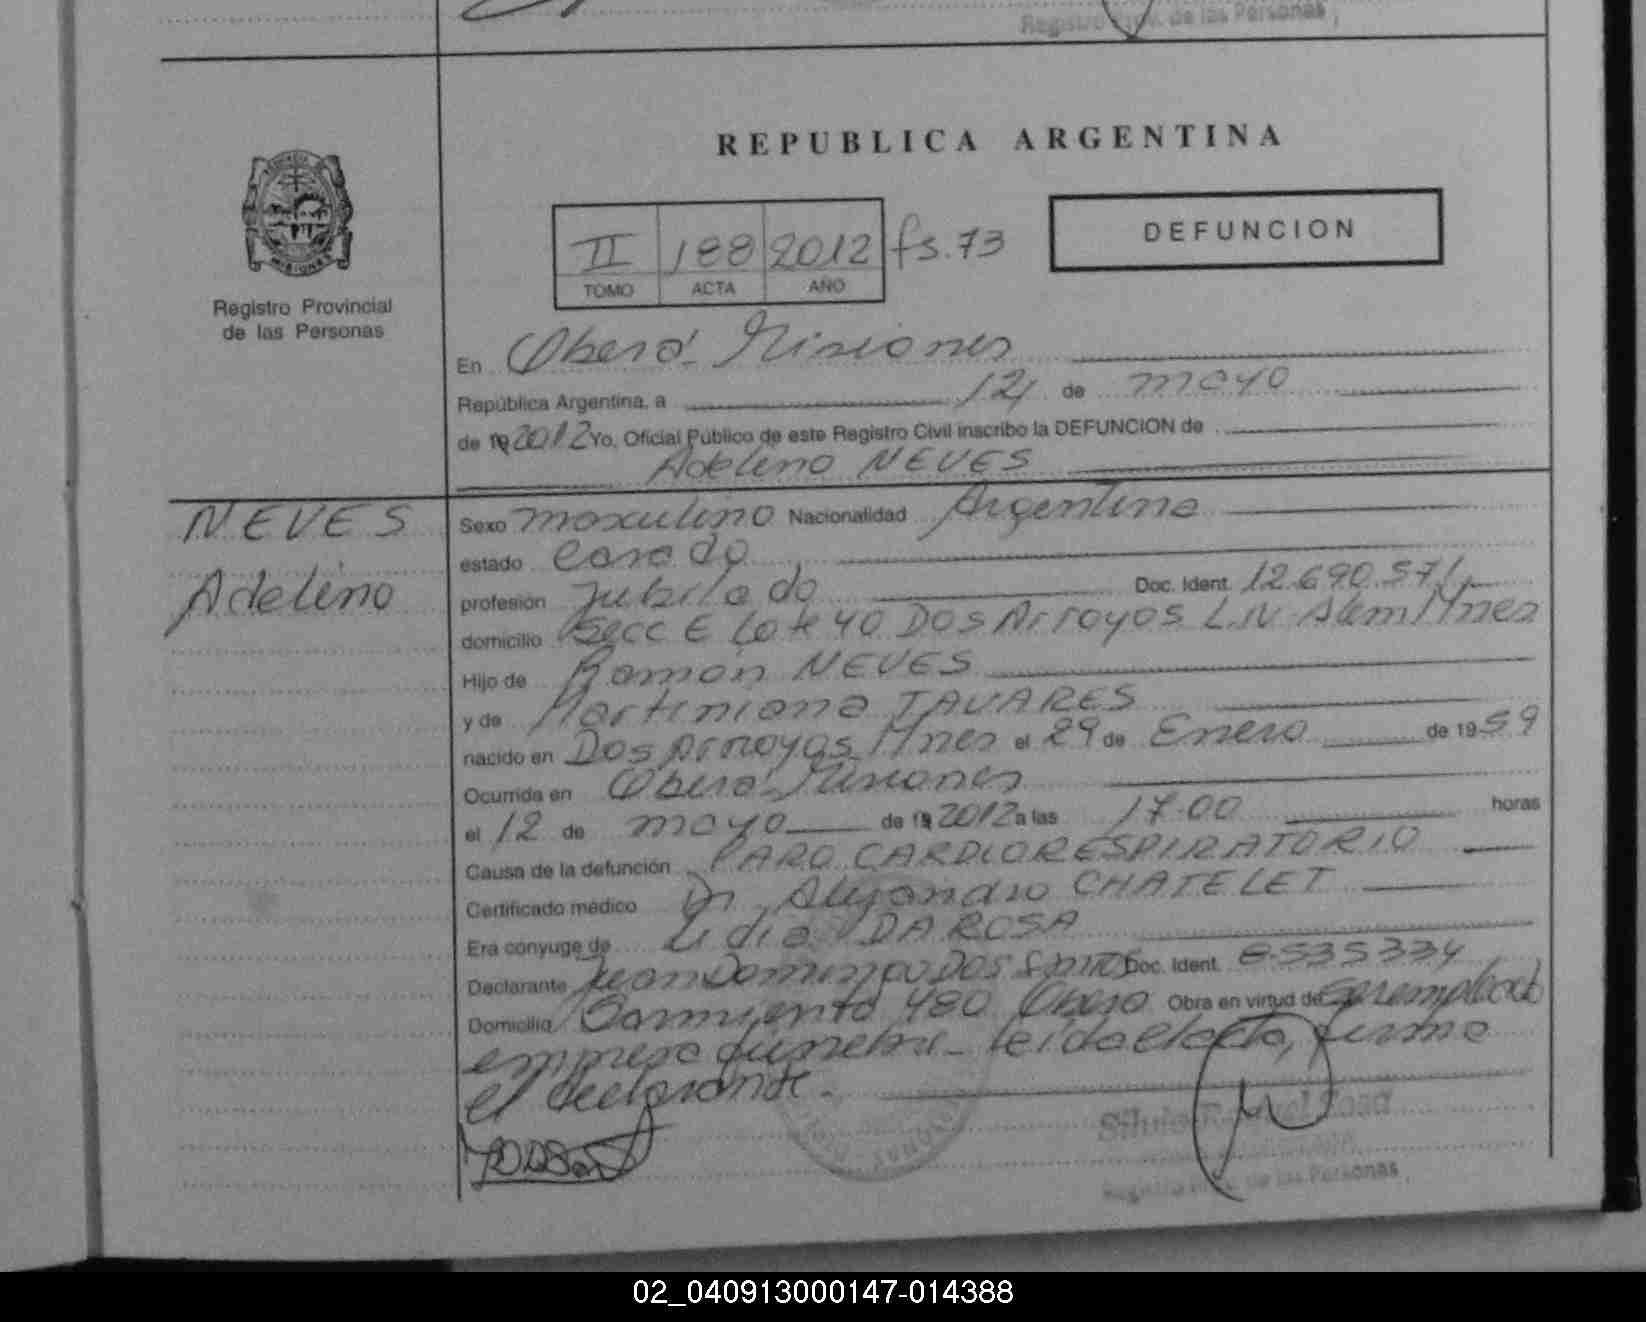 Registro Prov. de las Personas
REPUBLICA ARGENTINA
MISIONES
Registro Provincial
de las Personas
II 188 2012 fs. 73
TOMO ACTA AÑO
DEFUNCION
En Oberá - Misiones
República Argentina, a 12 de mayo
de 19 2012 Yo, Oficial Público de este Registro Civil inscribo la DEFUNCION de
Adelino NEVES
NEVES
Adelino
Sexo masculino Nacionalidad Argentina
estado Casado
profesión Jubilado Doc. Ident. 12.690.571
domicilio Secc E Lote 40 Dos Arroyos L.N. Alem Mnes
Hijo de Ramón NEVES
y de Martiniana TAVARES
nacido en Dos Arroyos Mnes el 29 de Enero de 1959
Ocurrida en Oberá - Misiones
el 12 de mayo de 19 2012 a las 17:00 horas
Causa de la defunción PARO CARDIORESPIRATORIO
Certificado médico Dr. Alejandro CHATELET
Era cónyuge de Lidia DA ROSA
Declarante Juan Domingo DOS SANTOS Doc. Ident. 8535334
Domicilio Sarmiento 480 Oberá Obra en virtud de ser empleado
empresa funebre - leída el acta, firma
el declarante.
Registro Prov. de las Personas
02_040913000147-014388